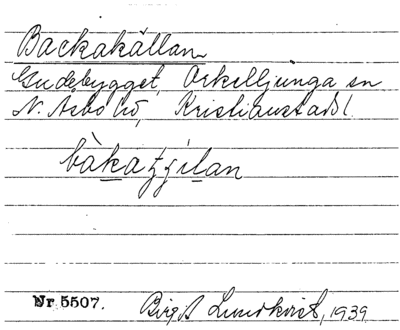 Backakällan
Gudsbygget, Örkelljunga sn
N. Åsbo hd, Kristianstads l.
bàkaʒʒilan
Nr 5507. Birgit Lundkvist, 1939